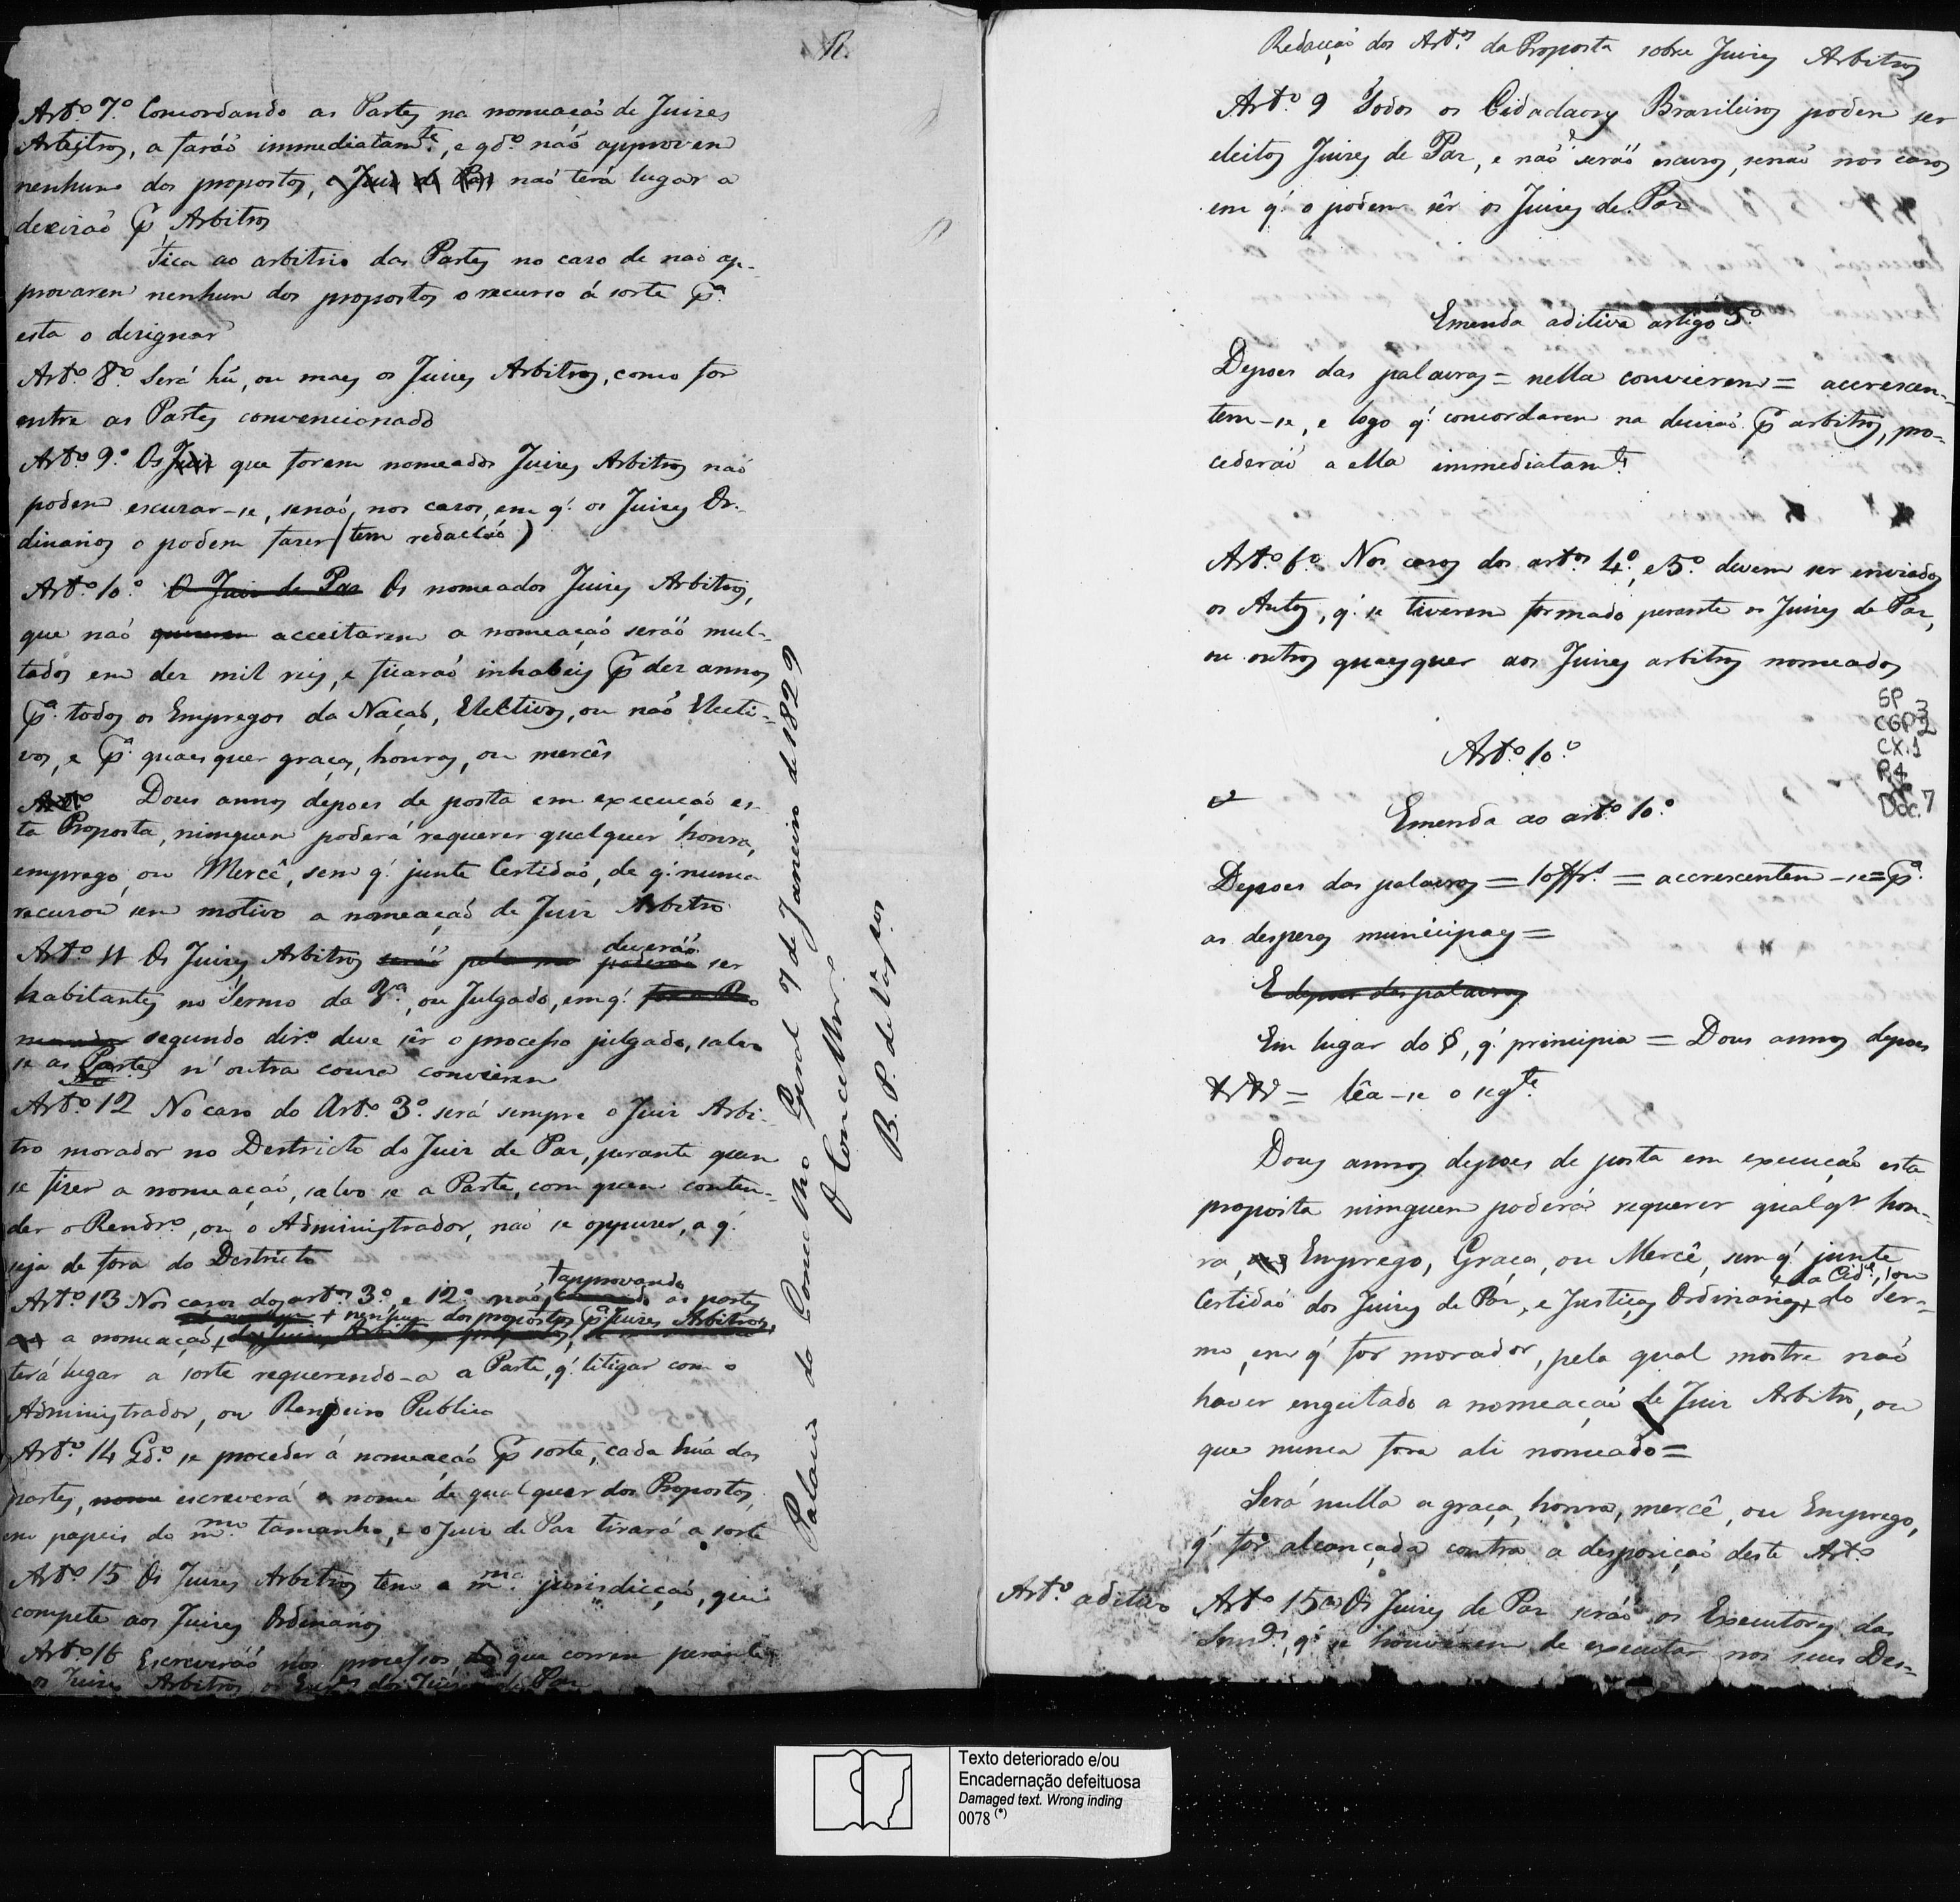 R.
Art.º 7.º Concordando as Partes na nomeação de Juizes
Arbitros, a farão immediatam.te, e qd.º não approvem
nenhum dos propostos, o Juiz de Paz não terá lugar a
dexizão p Arbitros
Fica ao arbitrio das Partes no caso de não ap-
provarem nenhum dos propostos o recurso á sorte p.ª
esta o dezignar
Art.º 8.º Será hũ, ou mais os Juizes Arbitros, como for
entre as Partes convencionado
Art.º 9.º Os Juiz que forem nomeados Juizes Arbitros não
podem escuzar-se, senão, nos cazos, em q' os Juizes Or-
dinarios o podem fazer (tem redacção)
Art.º 10.º O Juiz de Paz Os nomeados Juizes Arbitros,
que não querem acceitarem a nomeação serão mul-
tados em dez mil reis, e ficarão inhabeis p dez annos
p.ª todos os Empregos da Nação, Electivos, ou não Electi-
vos, e p.ª quaesquer graças, honras, ou mercês
Art.º Dous annos depoes de posta em execução es-
ta Proposta, ninguem poderá requerer qualquer honra,
emprego, ou Mercê, sem q' junte Certidão, de q' nunca
recuzou sem motivo a nomeação de Juiz Arbitro
Art.º 11 Os Juizes Arbitros serão deverão poderão ser
habitantes no Termo da V.ª, ou Julgado, em q'
segundo dir.º deve sêr o processo julgado, salvo
se as Partes n'outra couza convierem
Art.º 12 No cazo do Art.º 3.º será sempre o Juiz Arbi-
tro morador no Destricto do Juiz de Paz, perante quem
se fizer a nomeação, salvo se a Parte, com quem conten-
der o Rendr.º, ou o Administrador, não se oppuzer, a q'
seja de fora do Destricto
Art.º 13 Nos cazos dos art.os 3.º, e 12.º não, approvando as partes
+ nenhum dos propostos p.ª Juizes Arbitros,
a nomeação + dos Juizes Arbitros
terá lugar a sorte requerendo-a a Parte, q' litigar com o
Administrador, ou Rendeiro Publico
Art.º 14 Qd.º se proceder á nomeação p sorte, cada hũa das
partes, nome escreverá o nome de qualquer dos Propostos
em papeis do m.mo tamanho, e o Juiz de Paz tirará a sorte
Art.º 15 Os Juizes Arbitros tem a m.ma jurisdicção, que
compete aos Juizes Ordinarios
Art.º 16 Escreverão nos processos, que correm perante
os Juizes Arbitros os Escr.es dos Juizes de Paz
Palacio do Conselho Geral 7 de Janeiro de 1829
O Conselhr.º
B. P. de Vas.cos
Redacção dos Art.os da Proposta sobre Juizes Arbitros
Art.º 9 Todos os Cidadaons Brasileiros podem ser
eleitos Juizes de Paz, e não serão escuzos, senão nos cazos
em q' o podem sêr os Juizes de Paz
Emenda aditiva artigo 5.º
Depoes das palavras = nella convierem = accrescen-
tem-se, e logo q' concordarem na decizão p arbitros, pro-
cederão a ella immediatam.te
Art.º 6.º Nos cazos dos art.os 4.º, e 5.º devem ser enviados
os Autos, q' se tiverem formado perante os Juizes de Paz,
ou outros quaesquer aos Juizes arbitros nomeados
SP
CGP 3
2
CX.1
P4
Doc.7
Art.º 10.º
Emenda ao art.º 10.º
Depoes das palavras = 10//rs = accrescentem-se = p.ª
as despezas municipaes =
E depoes das palavras
Em lugar do §, q' principia = Dous annos depoes
= lêa-se o seg.te
Dous annos depoes de posta em execução esta
proposta ninguem poderá requerer qualq.r hon-
ra, Emprego, Graça, ou Mercê, sem q' junte
Certidão dos Juizes de Paz, e Justiças Ordinarias + da Cid.e, ou do Ter-
mo, em q' for morador, pela qual mostre não
haver engeitado a nomeação de Juiz Arbitro, ou
que nunca fora ali nomeado =
Será nulla a graça, honra, mercê, ou Emprego,
q' for alcançada contra a despozição deste Art.º
Art.º aditivo Art.º 15 Os Juizes de Paz serão os Executores das
Senn.ças, q' se houverem de executar nos seus Des-
Texto deteriorado e/ou
Encadernação defeituosa
Damaged text. Wrong inding
0078 (*)